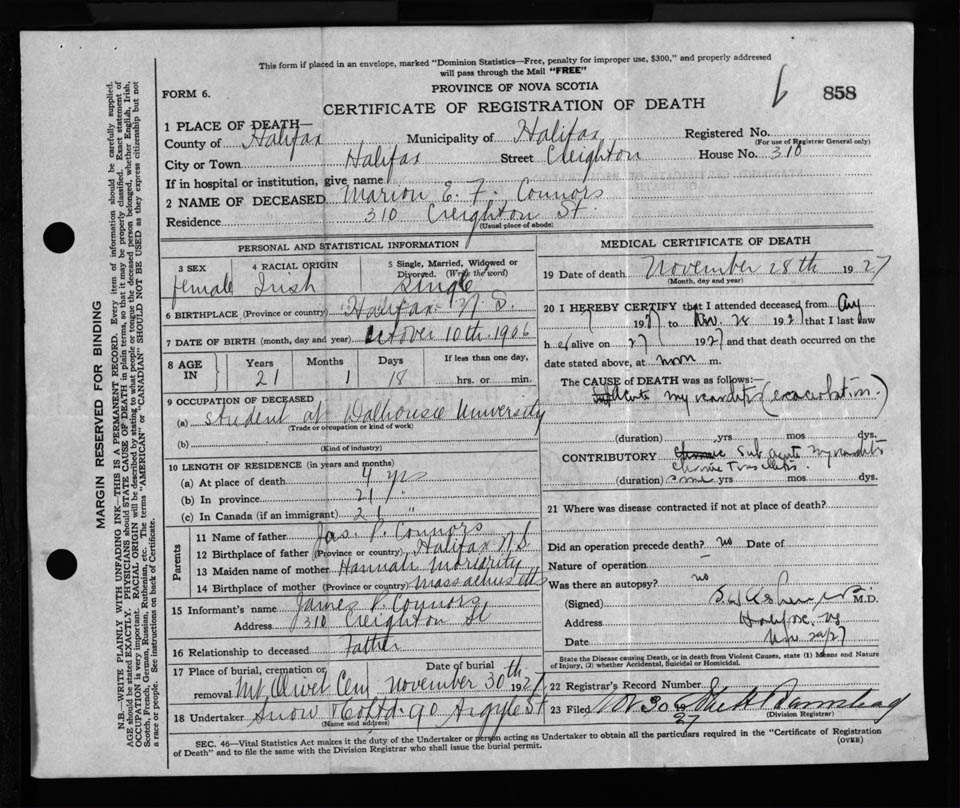 This form if placed in an envelope, marked "Dominion Statistics—Free, penalty for improper use, $300," and properly addressed
will pass through the Mail "FREE"
FORM 6.
PROVINCE OF NOVA SCOTIA
858
CERTIFICATE OF REGISTRATION OF DEATH
1 PLACE OF DEATH—
County of Halifax Municipality of Halifax Registered No.
(For use of Registrar General only)
City or Town Halifax Street Creighton House No. 310
If in hospital or institution, give name
2 NAME OF DECEASED Marion E. F. Connors
Residence 310 Creighton St.
(Usual place of abode)
PERSONAL AND STATISTICAL INFORMATION
3 SEX 4 RACIAL ORIGIN 5 Single, Married, Widowed or
Divorced. (Write the word)
female Irish Single
6 BIRTHPLACE (Province or country) Halifax N.S.
7 DATE OF BIRTH (month, day and year) October 10th 1906
8 AGE IN Years Months Days If less than one day,
21 1 18 hrs. or min.
9 OCCUPATION OF DECEASED
(a) Student at Dalhousie University
(Trade or occupation or kind of work)
(b)
(Kind of industry)
10 LENGTH OF RESIDENCE (in years and months)
(a) At place of death 4 yrs
(b) In province 21 "
(c) In Canada (if an immigrant) 21 "
Parents
11 Name of father Jas. P. Connors
12 Birthplace of father (Province or country) Halifax N S
13 Maiden name of mother Hannah Moriarity
14 Birthplace of mother (Province or country) Massachusetts
15 Informant's name James P. Connors
Address 310 Creighton St
16 Relationship to deceased Father
17 Place of burial, cremation or removal Mt Olivet Cem Date of burial November 30th 1927
18 Undertaker Snow & Co Ltd. 90 Argyle St
(Name and address)
MEDICAL CERTIFICATE OF DEATH
19 Date of death November 28th 1927
(Month, day and year)
20 I HEREBY CERTIFY that I attended deceased from Aug
1927 to Nov. 28 1927 that I last saw
her alive on 27 1927 and that death occurred on the
date stated above, at noon m.
The CAUSE of DEATH was as follows:—
acute myocarditis (exacerbation.)
(duration) yrs. mos. dys.
CONTRIBUTORY Sub acute myocarditis
chronic Tonsilitis.
(duration) yrs. mos. dys.
21 Where was disease contracted if not at place of death?
Did an operation precede death? no Date of
Nature of operation
Was there an autopsy? no
(Signed) M.D.
Address Halifax, NS
Date Nov
State the Disease causing Death, or in death from Violent Causes, state (1) Means and Nature
of Injury, (2) whether Accidental, Suicidal or Homicidal.
22 Registrar's Record Number
23 Filed N 30 27
(Division Registrar)
SEC. 46—Vital Statistics Act makes it the duty of the Undertaker or person acting as Undertaker to obtain all the particulars required in the "Certificate of Registration
of Death" and to file the same with the Division Registrar who shall issue the burial permit.
(OVER)
MARGIN RESERVED FOR BINDING
N.B.—WRITE PLAINLY WITH UNFADING INK—THIS IS A PERMANENT RECORD. Every item of information should be carefully supplied.
AGE should be stated EXACTLY. PHYSICIANS should STATE CAUSE OF DEATH in plain terms, so that it may be properly classified. Exact statement of
OCCUPATION is very important. RACIAL ORIGIN will be described by stating to what people or tongue the deceased person belonged, whether English, Irish,
Scotch, French, German, Russian, Ruthenian, etc. The terms "AMERICAN" or "CANADIAN" SHOULD NOT BE USED as they express citizenship but not
a race or people. See instructions on back of Certificate.